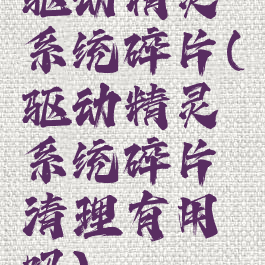 驱动精灵
系统碎片(
驱动精灵
系统碎片
清理有用
吗)